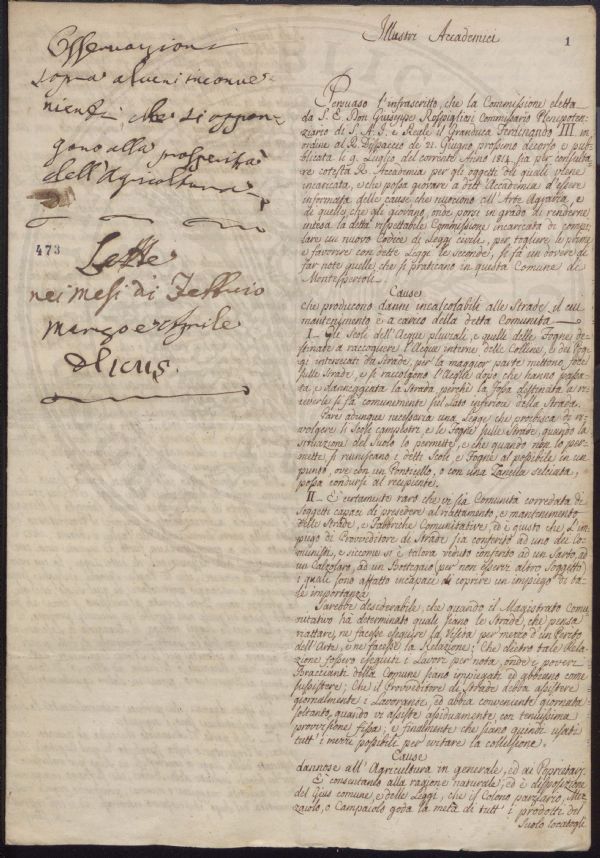 Osservazioni
sopra alcuni inconve-
nienti, che si oppon-
gono alla prosperità
dell'Agricoltura
473
Lette
nei mesi di Febbraio
marzo e Aprile
Illustri Accademici
1
Pervaso l'infrascritto, che la Commissione eletta
da S. E. Don Giuseppe Rospigliosi Commissario Plenipoten-
ziario di S. A. I. e Reale il Granduca Ferdinando III. in
ordine al R. Dispaccio de 21. Giugno prossimo decorso e pub-
blicata le 9. Luglio del corrente Anno 1814. sia per consulta-
re cotesta R. Accademia per gli oggetti dei quali viene
incaricata, e che possa giovare a dett'Accademia d'essere
informata delle cause che nuociono all'Arte Agraria, e
di quelle che gli giovano, onde porsi in grado di renderne
intesa la detta rispettabile Commissione incaricata di compi-
lare un nuovo Codice di Leggi civili, per togliere le prime
e favorire con dette Leggi le seconde, si fà un dovere di
far note quelle che si praticano in questa Comune di
Montespertoli.
Cause
che producono danni incalcolabili alle Strade, il cui
mantenimento è a carico della detta Comunità
I. Gli Scoli dell'Acque pluviali, e quelli delle Fogne de-
stinate a raccogliere l'Acque interne delle Colline, e dei Pog-
gi intersecati da Strade, per la maggior parte mettono foce
sulle Strade, e si raccolgono l'Acque dopo che hanno passa-
ta, e danneggiata la Strada, perchè la fossa destinata a ri-
ceverle si fà comunemente sul Lato inferiore della Strada.
Pare adunque necessaria una Legge che proibisca di ri-
volgere li Scoli campestri e le Fogne sulle Strade, quando la
situazione del Suolo lo permette, e che quando non lo per-
mette, si riunischino i detti Scoli e Fogne al possibile in un
punto, ove con un Ponticello, o con una Zanella selciata,
possa condursi al recipiente.
II. È certamente raro che vi sia Comunità corredata di
Soggetti capaci di presedere al riattamento, e mantenimento
delle Strade, e Fabbriche Comunitative, ed è giusto che l'im-
piego di Provveditore di Strade sia conferito ad uno dei Co-
munisti, e siccome si è talora veduto conferito ad un Sarto, ad
un Calzolaro, ad un Bottegaio (per non esservi altro Soggetto)
i quali sono affatto incapaci di coprire un impiego di ta-
le importanza,
Sarebbe desiderabile, che quando il Magistrato Comu-
nitativo ha determinato quali siano le Strade, che pensa
riattare, ne facesse eseguire la Visita per mezzo d'un Perito
dell'Arte, e ne facesse la Relazione; Che dietro tale Rela-
zione fossero eseguiti i Lavori per nota, onde i poveri
Braccianti della Comune siano impiegati ed abbiano come
sussistere; Che il Provveditore di Strade debba assistere
giornalmente i Lavoranti, ed abbia conveniente giornata
soltanto quando vi assiste assiduamente, con tenuissima
provvisione fissa; e finalmente che siano quindi usati
tutt'i mezzi possibili per evitare la collusione.
Cause
dannose all'Agricultura in generale, ed ai Proprietarj.
È consentaneo alla ragione naturale, ed è disposizione
del Gius comune, e delle Leggi, che il Colono parziario, Mez-
zaiolo, o Campaiolo goda la metà di tutt'i prodotti del
Suolo locatogli